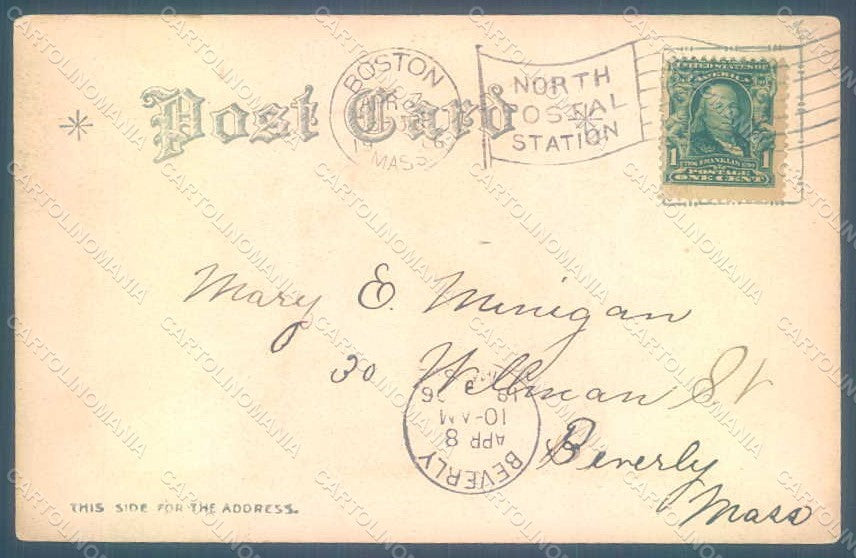 BOSTON
APR
19 06
MASS.
NORTH
POSTAL
STATION
Post Card
UNITED STATES OF
AMERICA
1 FRANKLIN 1
POSTAGE
ONE CENT
Mary E. Minigan
30 Wellman St
Beverly
Mass
BEVERLY
APR 8
10-AM
THIS SIDE FOR THE ADDRESS.
CARTOLINOMANIA